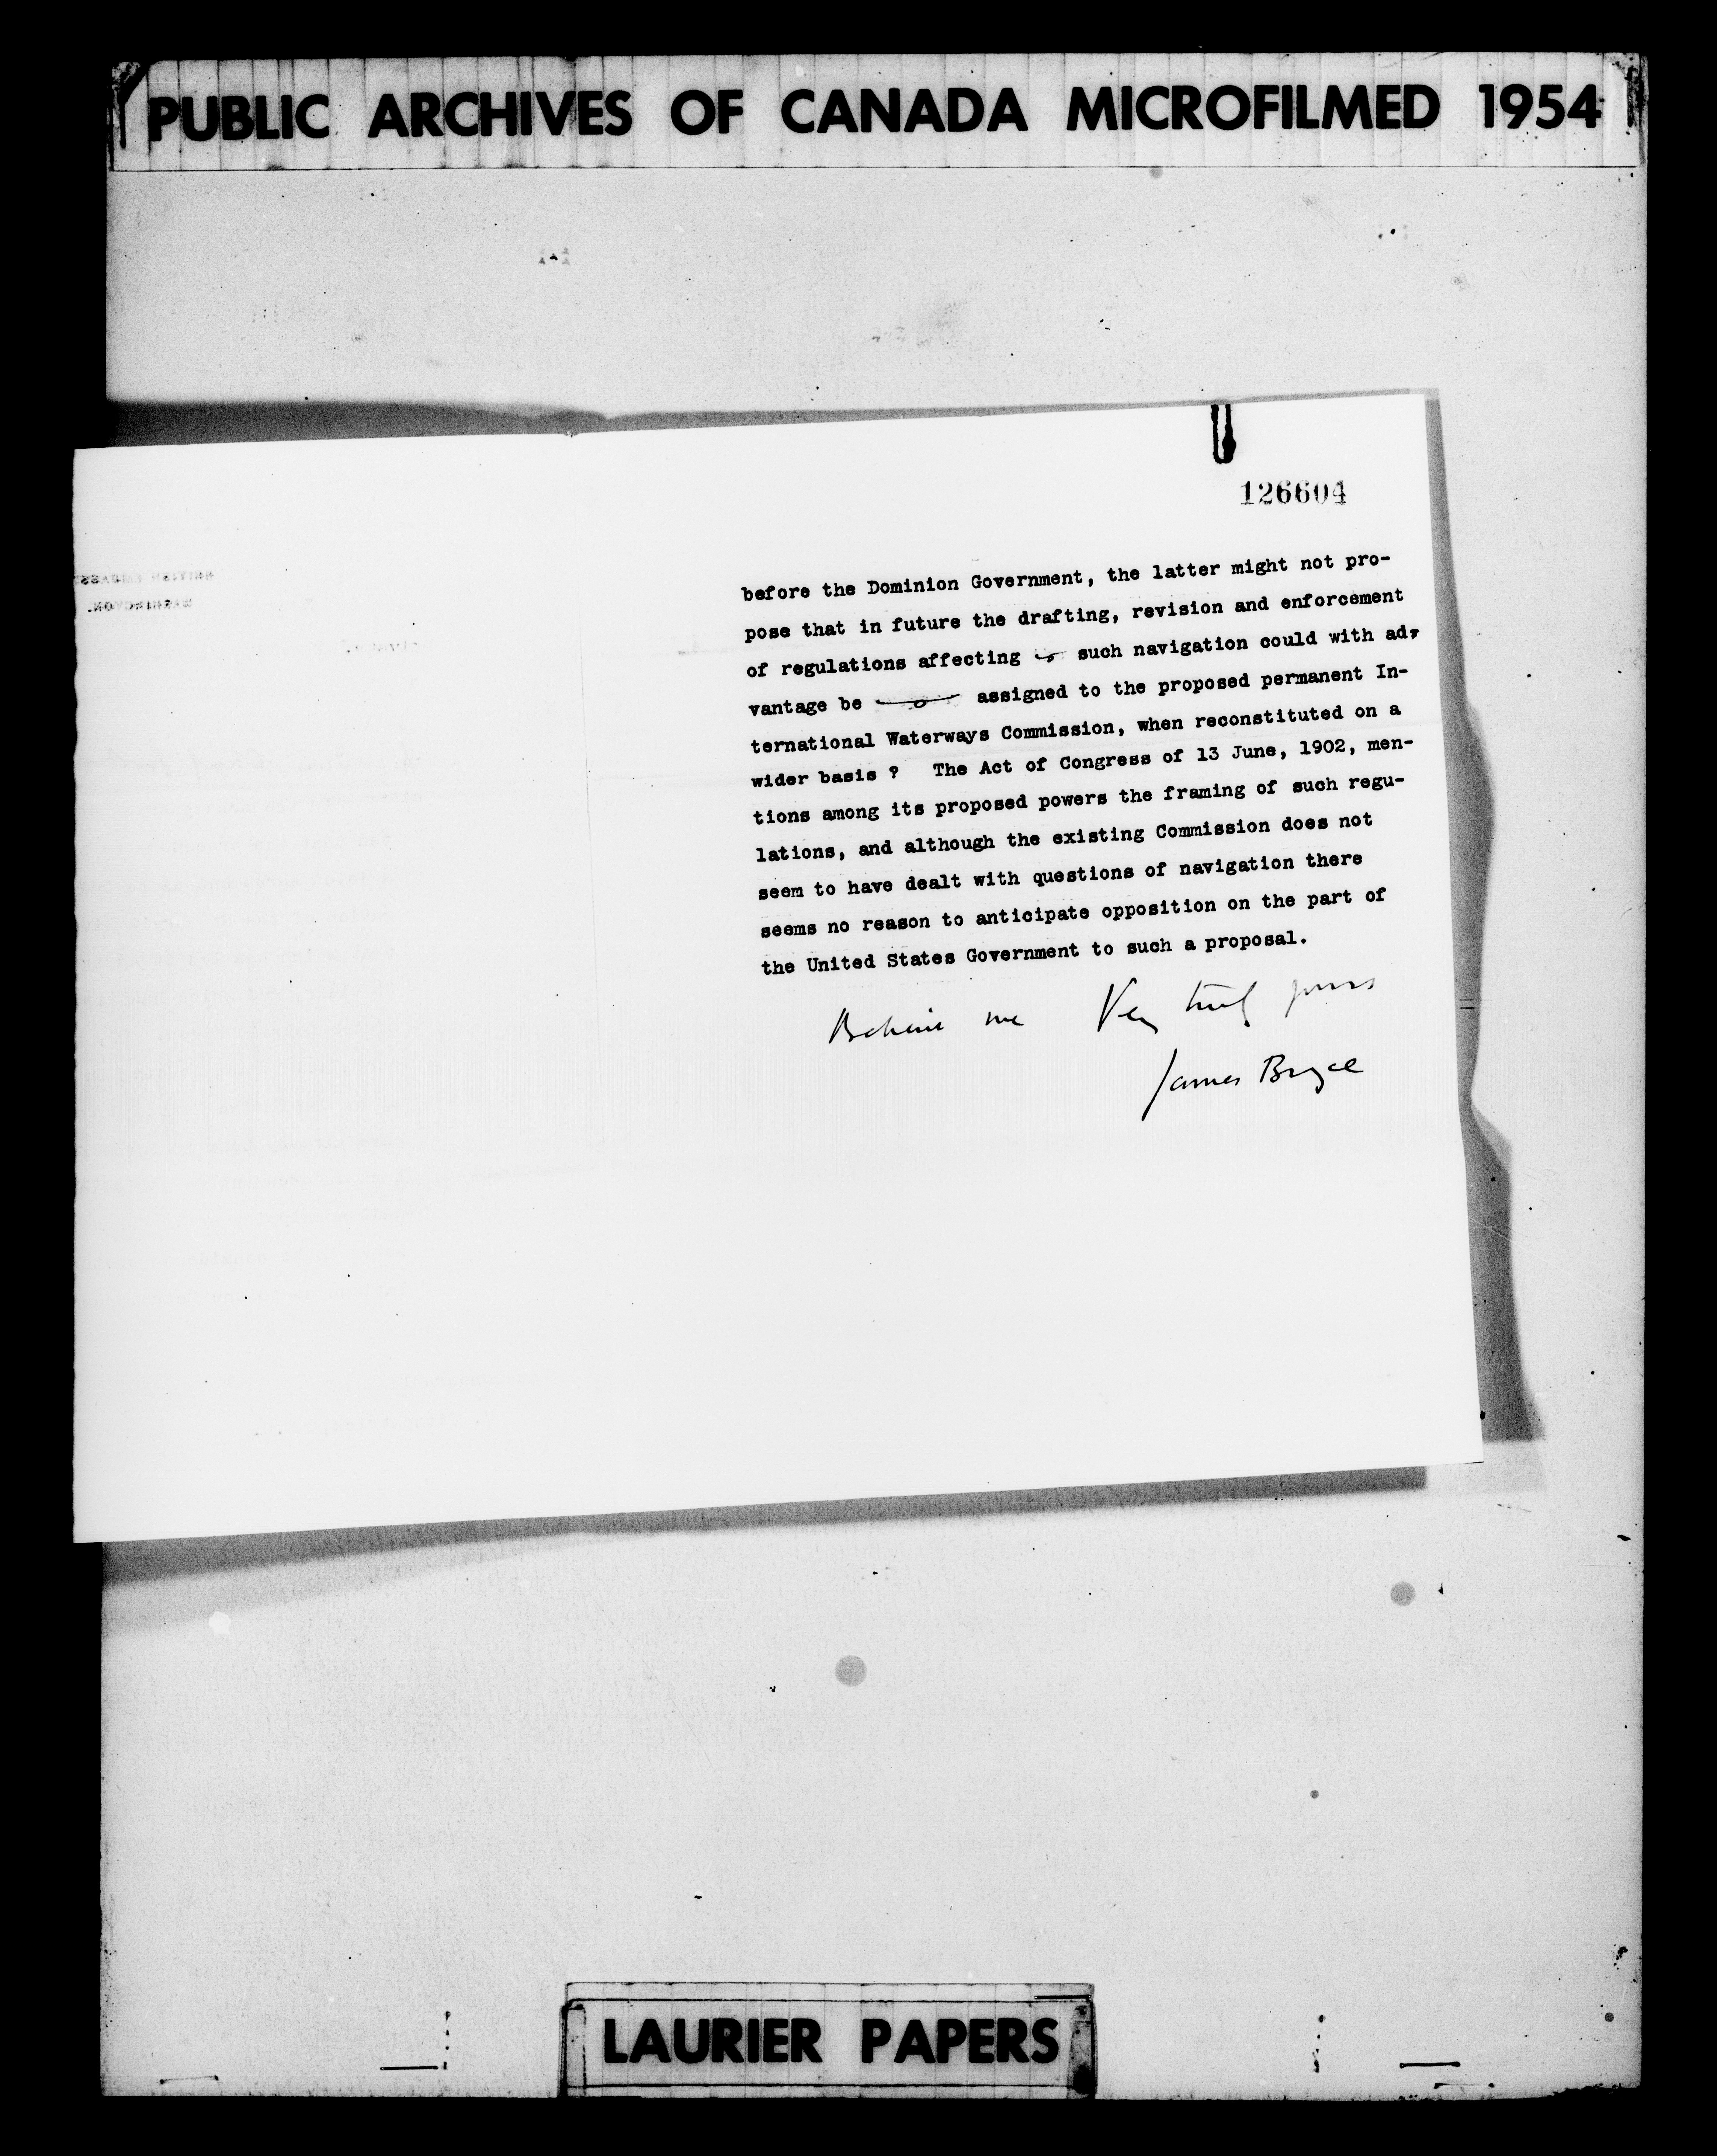 PUBLIC ARCHIVES OF CANADA MICROFILMED 1954
126604
BRITISH EMBASSY
WASHINGTON.
before the Dominion Government, the latter might not pro-
pose that in future the drafting, revision and enforcement
of regulations affecting such navigation could with ad-
vantage be assigned to the proposed permanent In-
ternational Waterways Commission, when reconstituted on a
wider basis ? The Act of Congress of 13 June, 1902, men-
tions among its proposed powers the framing of such regu-
lations, and although the existing Commission does not
seem to have dealt with questions of navigation there
seems no reason to anticipate opposition on the part of
the United States Government to such a proposal.
Believe me Very truly yours
James Bryce
LAURIER PAPERS